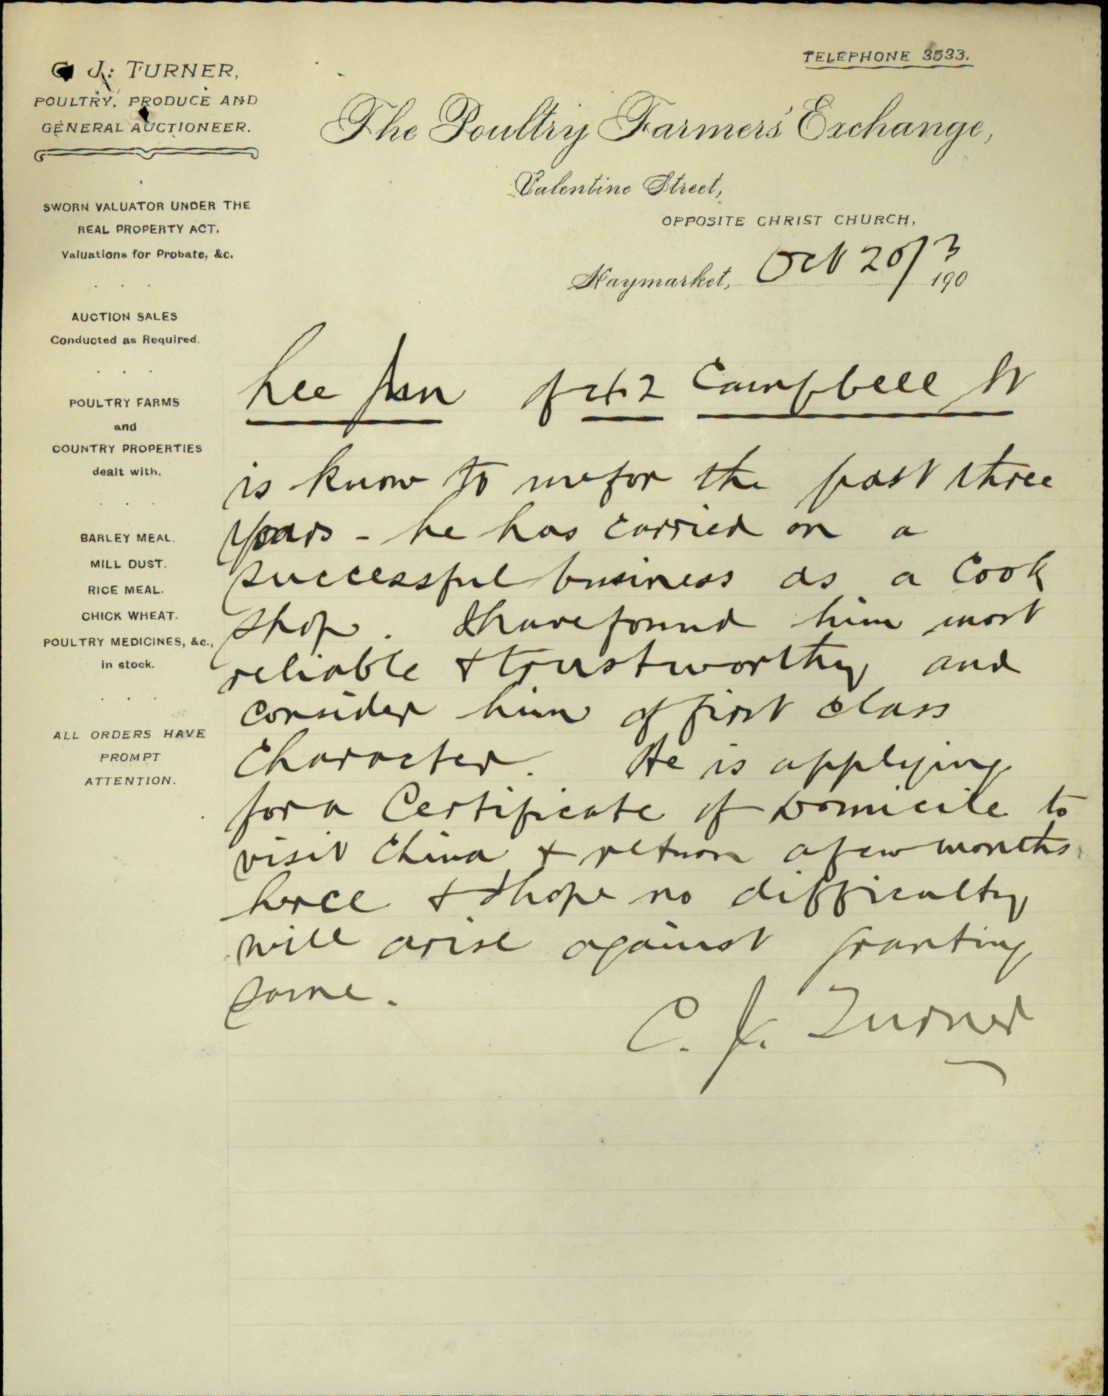 C. J. TURNER,
POULTRY, PRODUCE AND
GENERAL AUCTIONEER.
SWORN VALUATOR UNDER THE
REAL PROPERTY ACT.
Valuations for Probate, &c.
AUCTION SALES
Conducted as Required.
POULTRY FARMS
and
COUNTRY PROPERTIES
dealt with.
BARLEY MEAL.
MILL DUST.
RICE MEAL.
CHICK WHEAT.
POULTRY MEDICINES, &c.,
in stock.
ALL ORDERS HAVE
PROMPT
ATTENTION.
TELEPHONE 3533.
The Poultry Farmers' Exchange,
Valentine Street,
OPPOSITE CHRIST CHURCH,
Haymarket, Oct 20/3 190
Lee of 42 Campbell St
is know to me for the past three
years - he has carried on a
successful business as a Cook
shop. I have found him most
reliable & trustworthy and
consider him of first class
character. He is applying
for a Certificate of Domicile to
visit China & return a few months
hence & I hope no difficulty
will arise against granting
same.
C. J. Turner